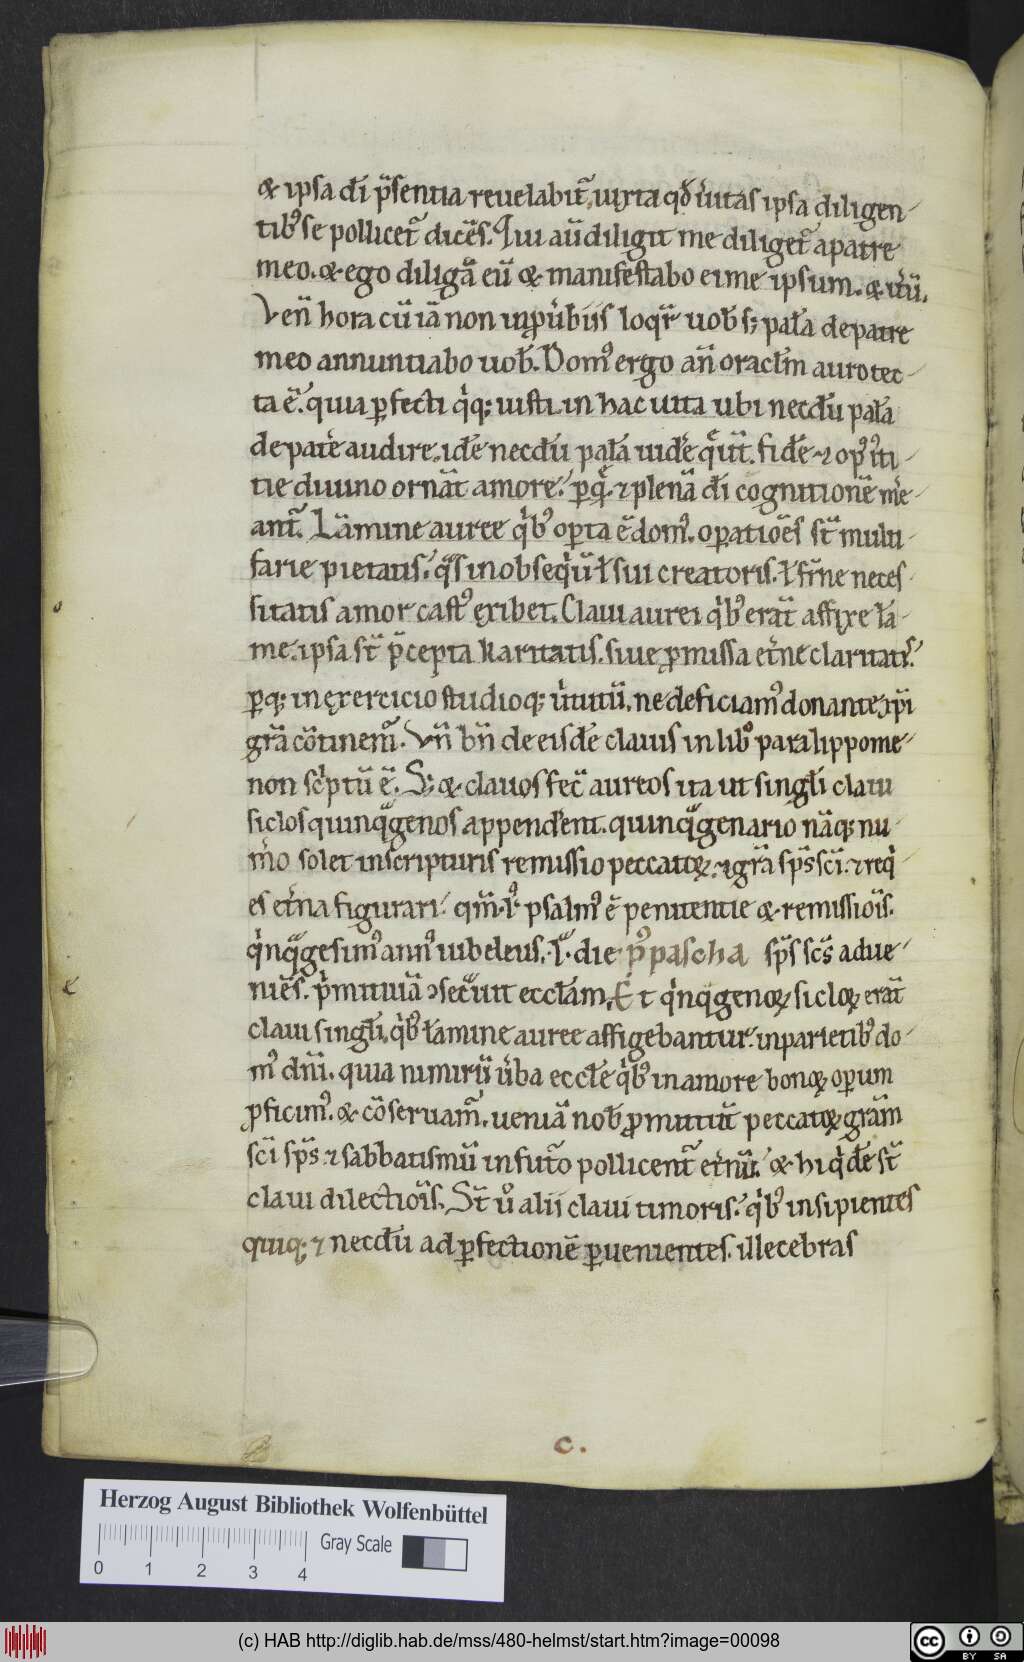 & ipsa dī p̄sentia reuelabit᷑, iuxta qđ u̇itas ipsa diligen-
tibꝰ se pollicet᷑ dicēs. Qui aū diligit me diliget᷑ a patre
meo. & ego diligā eū & manifestabo ei me ipsum. & itͥū.
Ven̄ hora cū iā non in ꝓu̇biis loqr̄ uob̄ s; pala̅ de patre
meo annuntiabo uob̄. Domꝰ ergo an̄ oraclm̄ auro tec-
ta ē. quia ꝑfecti qͥq; iusti in hac uita ubi necdū pala̅
de patͤ audire, idē necdū pala̅ uidē q̄ūt. fidē ⁊ opꝰ iti-
tie diuino ornāt amore.
ant᷑. Lāmine auree qͥbꝰ opta ē domꝰ. oꝑatiōes st̄ multi-
farie pietatis. q̄s in obseqͥū ł sui creatoris. ł fr̄ne neces-
sitatis amor castꝰ exibet. Claui aurei qͥbꝰ erāt affixe la̅-
me. ipsa st̄ p̄cepta karitatis. siue ꝓmissa et̄ne claritatͥs.
ꝑ q; in exercicio studioq; u̇tutū, ne deficiamꝰ donante xp̄i
gr̄a cōtinem᷑. Vn̄ bn̄ de eisdē clauis in libꝰ paralippome-
non sc̄ptū ē. S; & clauos fec̄ aureos ita ut singłi claui
siclos quinq̄genos appenderent. quinq̄genario nāq; nu-
m̄o solet in scripturis remissio peccatoꝝ. ⁊ gr̄a sp̄s sc̄i. ⁊ reqͥ-
es et̄na figurari. qm̄ .l.ꝰ psalmꝰ ē penitentie & remissiois̄.
qͥnq̄gesimꝰ annꝰ iubeleus. .l. die pꝰ pascha sp̄s sc̄s adue-
niēs. pͥmitiuā ꝯsec̄uit eccłam, Et qͥnq̄genoꝝ sicloꝝ erāt
claui singłi, qͥbꝰ łamine auree affigebantur. in parietibꝰ do-
mꝰ dn̄i. quia nimirū u̇ba eccłe qͥbꝰ in amore bonoꝝ oꝑum
ꝓficimꝰ. & cōseruam᷑. ueniā nob̄ ꝓmittūt peccatoꝝ gr̄am
sc̄i sp̄s. ⁊ sabbatismū in fut᷑o pollicent᷑ et̄nū. & hi qͥdē st̄
claui dilectiois̄. St̄ uͦ alii claui timoris. qͥbꝰ insipientes
quiq; ⁊ necdū ad ꝑfectionē ꝑuenientes. illecebras
c.
Herzog August Bibliothek Wolfenbüttel
Gray Scale
0 1 2 3 4
(c) HAB http://diglib.hab.de/mss/480-helmst/start.htm?image=00098
cc BY SA